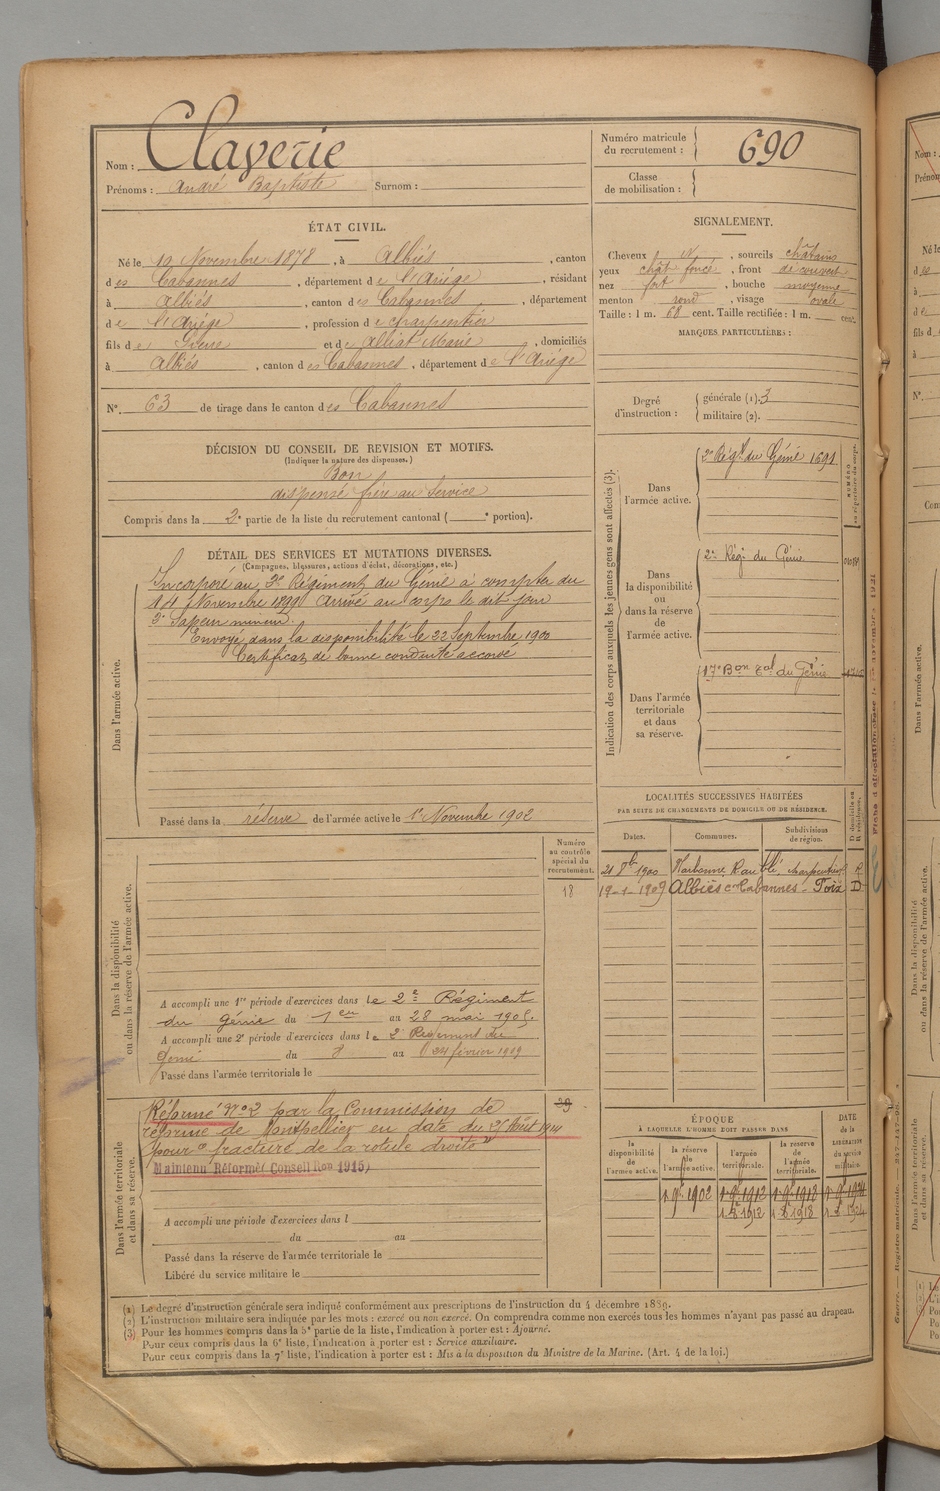 Nom : Clagerie
Prénoms : André Baptiste Surnom :
Numéro matricule du recrutement : 690
Classe de mobilisation :
ÉTAT CIVIL.
Né le 19 Novembre 1878, à Albiés, canton
des Cabannes, département de l'Ariége, résidant
à Albiés, canton des Cabannes, département
de l'Ariége, profession de charpentier
fils de Pierre et de Alliat Marie, domiciliés
à Albiés, canton des Cabannes, département de l'Ariége
N° 63 de tirage dans le canton des Cabannes
SIGNALEMENT.
Cheveux id, sourcils châtains
yeux chât foncé, front découvert
nez fort, bouche moyenne
menton rond, visage ovale
Taille : 1 m. 68 cent. Taille rectifiée : 1 m. cent.
MARQUES PARTICULIÈRES :
Degré d'instruction : générale (1). 3
militaire (2).
DÉCISION DU CONSEIL DE REVISION ET MOTIFS.
(Indiquer la nature des dispenses.)
Bon
dispensé frère au Service
Compris dans la 2e partie de la liste du recrutement cantonal ( e portion).
DÉTAIL DES SERVICES ET MUTATIONS DIVERSES.
(Campagnes, blessures, actions d'éclat, décorations, etc.)
Dans l'armée active.
Incorporé au 2e Régiment du Génie à compter du
14 Novembre 1899 Arrivé au corps le dit jour
2e Sapeur mineur.
Envoyé dans la disponibilité le 22 Septembre 1900
Certificat de bonne conduite accordé
Passé dans la réserve de l'armée active le 1er Novembre 1902
Indication des corps auxquels les jeunes gens sont affectés (3).
Dans l'armée active.
2e Régt du Génie 1691
Dans la disponibilité ou dans la réserve de l'armée active.
2e Régt du Génie
Dans l'armée territoriale et dans sa réserve.
17e Bon Tal du Génie
LOCALITÉS SUCCESSIVES HABITÉES
PAR SUITE DE CHANGEMENTS DE DOMICILE OU DE RÉSIDENCE.
Dates. Communes. Subdivisions de région. D domicile ou R résidence.
21 8bre 1900 Narbonne charpentier R
19-1-1909 Albiès con Cabannes - Foix D
Dans la disponibilité ou dans la réserve de l'armée active.
Numéro au contrôle spécial du recrutement.
18
A accompli une 1re période d'exercices dans le 2e Régiment
du génie du 1er au 28 mai 1905.
A accompli une 2e période d'exercices dans le 2e Régiment du
Génie du 8 au 24 février 1909
Passé dans l'armée territoriale le
Dans l'armée territoriale et dans sa réserve.
39
Réformé N° 2 par la Commission de
réforme de Montpellier en date du Août 1914
pour "fracture de la rotule droite"
Maintenu Réformé (Conseil Ron 1915)
A accompli une période d'exercices dans l
du au
Passé dans la réserve de l'armée territoriale le
Libéré du service militaire le
ÉPOQUE
À LAQUELLE L'HOMME DOIT PASSER DANS
la disponibilité de l'armée active. la réserve de l'armée active. l'armée territoriale. la réserve de l'armée territoriale. DATE de la LIBÉRATION du service militaire.
1er 9bre 1902 1er 9bre 1912 1er 9bre 1918 1er 9bre 1924
1er 8bre 1912 1er 8bre 1918 1er 8bre 1924
(1) Le degré d'instruction générale sera indiqué conformément aux prescriptions de l'instruction du 4 décembre 1889.
(2) L'instruction militaire sera indiquée par les mots : exercé ou non exercé. On comprendra comme non exercés tous les hommes n'ayant pas passé au drapeau.
(3) Pour les hommes compris dans la 5e partie de la liste, l'indication à porter est : Ajourné.
Pour ceux compris dans la 6e liste, l'indication à porter est : Service auxiliaire.
Pour ceux compris dans la 7e liste, l'indication à porter est : Mis à la disposition du Ministre de la Marine. (Art. 4 de la loi.)